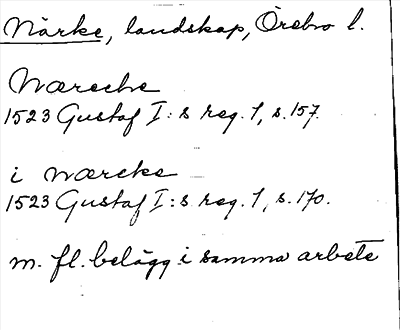 Närke, landskap, Örebro l.
Wæreche
1523 Gustaf I:s reg. 1, s. 157.
i wærcke
1523 Gustaf I:s reg. 1, s. 170.
m. fl. belägg i samma arbete